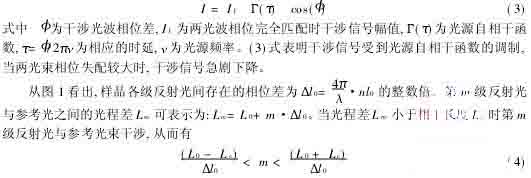 I = I₁ Γ(τ) cos(ϕ) (3)
式中 ϕ为干涉光波相位差, I₁ 为两光波相位完全匹配时干涉信号幅值, Γ(τ) 为光源自相干函
数, τ= ϕ/2πν 为相应的时延, ν 为光源频率。(3) 式表明干涉信号受到光源自相干函数的调制,
当两光束相位失配较大时, 干涉信号急剧下降。
从图 1 看出, 样品各级反射光间存在的相位差为 Δl₀= 4π/λ · nl₀ 的整数倍。第 m 级反射光
与参考光之间的光程差 Lₘ 可表示为: Lₘ= L₀+ m · Δl₀。当光程差 Lₘ 小于相干长度 L 时第 m
级反射光与参考光束干涉, 从而有
(L₀ − L꜀)/Δl₀ < m < (L₀ + L꜀)/Δl₀ (4)